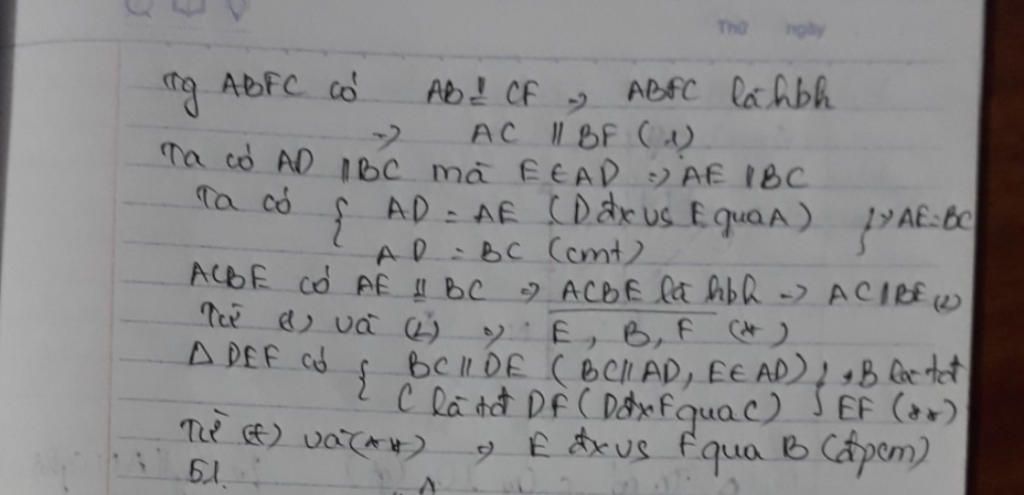 Thứ ngày
Tg ABFC có AB ⩲ CF => ABFC là hbh
=> AC // BF (1)
Ta có AD // BC mà E ∈ AD => AE // BC
Ta có { AD = AE (D đx vs E qua A) } => AE = BC
AD = BC (cmt)
ACBE có AE ⩲ BC => ACBE là hbh -> AC // BE (2)
Từ (1) và (2) => E, B, F (*)
Δ DEF có { BC // DE (BC // AD, E ∈ AD) } => B là tđ
C là tđ DF (D đx F qua C) } EF (**)
Từ (*) và (**) => E đx vs F qua B (đpcm)
51.
A